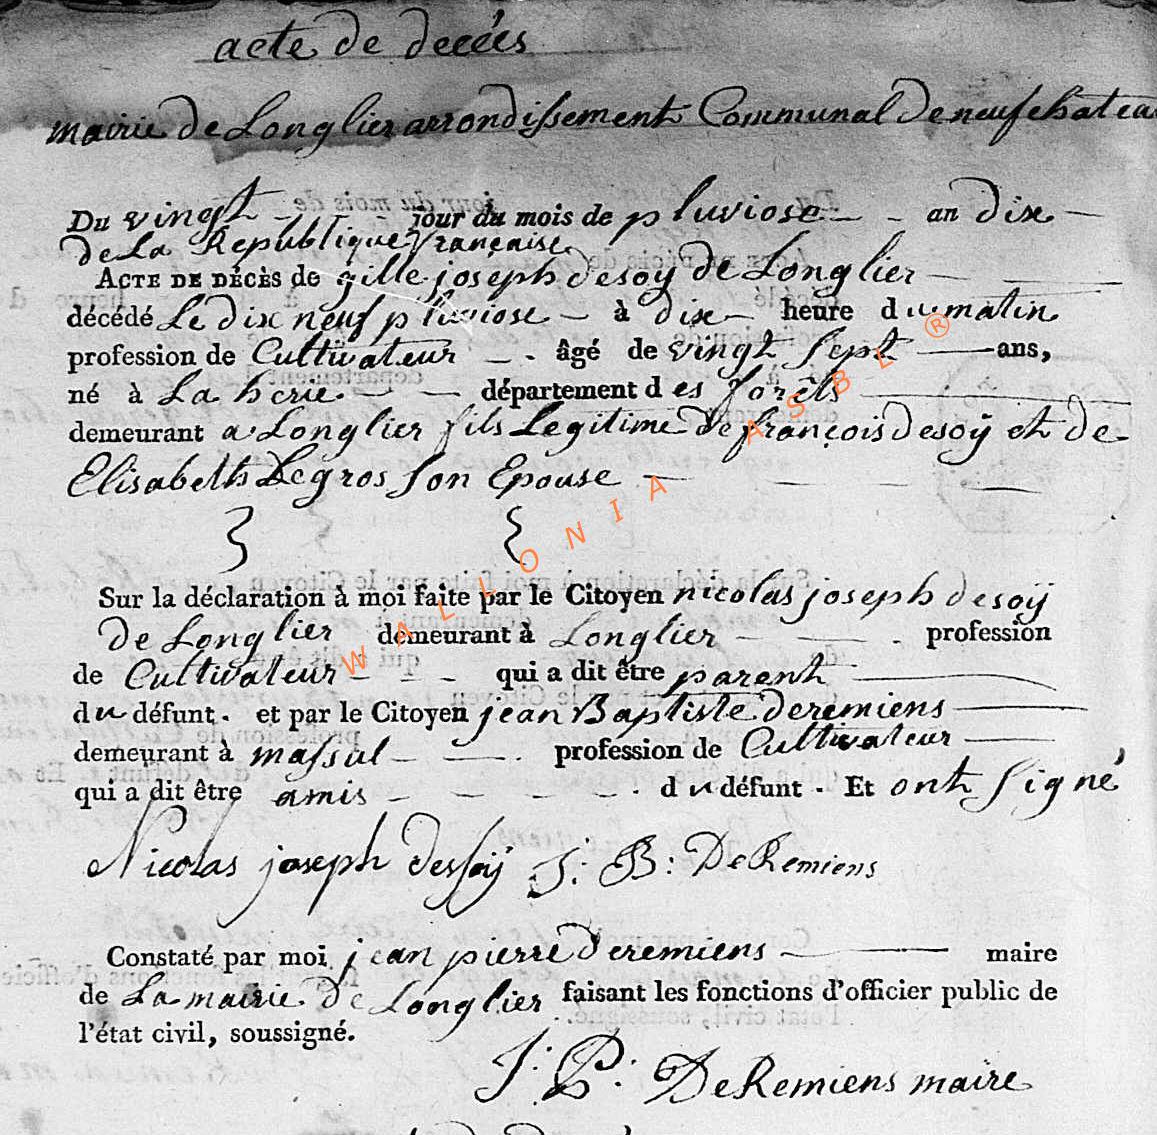 acte de decées
mairie de Longlier arrondissement Communal de neufchateau
Du vingt jour du mois de pluviose an dix
de La République française
ACTE DE DÉCÈS de gille joseph desoÿ de Longlier
décédé Le dix neuf pluviose à dix heure du matin
profession de Cultivateur âgé de vingt sept ans,
né à La herie département des forêts
demeurant a Longlier fils Legitime de françois desoÿ et de
Elisabeth Legros son Epouse
Sur la déclaration à moi faite par le Citoyen nicolas joseph desoÿ
de Longlier demeurant à Longlier profession
de Cultivateur qui a dit être parent
du défunt. et par le Citoyen jean Baptiste deremiens
demeurant à massul profession de Cultivateur
qui a dit être amis du défunt. Et ont signé
Nicolas joseph dessoÿ J: B: DeRemiens
Constaté par moi jean pierre deremiens maire
de La mairie de Longlier faisant les fonctions d'officier public de
l'état civil, soussigné.
J: P: DeRemiens maire
WALLONIA ASBL ®